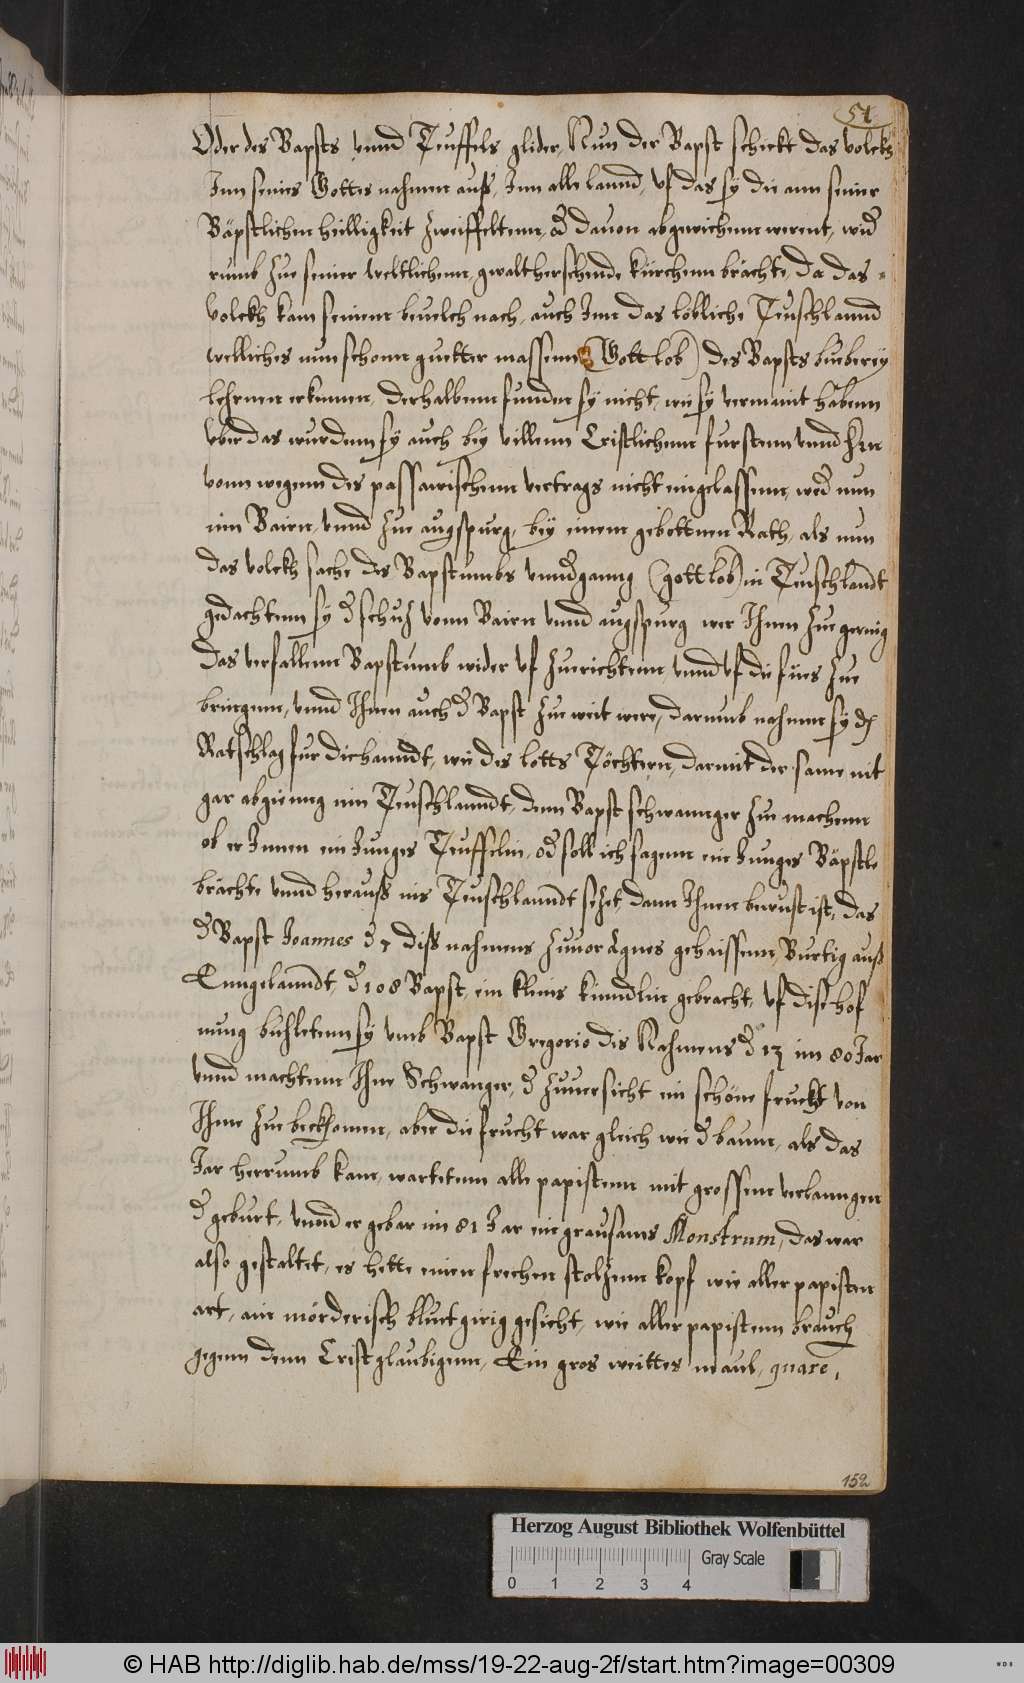 51
Oder des Bapsts vnnd Teuffels glider, Nun der Bapst schickt das volckh
Inn seines Gottes nahmen auß, Inn alle lannd, vf das sÿ die ann seiner
Bäpstlichen heilligkeit zweiffeltenn, od dauon abgewichenn werent, wid
rumb zue seiner weltlichenn, gwaltherschende kürchenn brächte, da das
volckh kam seinem beuelch nach, auch Inn das lobliche Teuschlannd
welliches nun schonn guetter massenn (Gott lob) des Bapsts bueberey
lehrnen erkennen, derhalbenn funden sÿ nicht, wie sÿ vermaint habenn
vber das wurdenn sÿ auch bey villenn Cristlichenn furstenn vnnd
vonn wegenn des passawischenn vertrags nicht eingelassenn, wed nun
inn Bairn, vnnd zue augspurg, beÿ einem gebettnen Rath, als nun
das volckh sache des Bapstumbs vnndgang (gott lob) in Teuschlandt
gedachtenn sÿ d schuz vonn Bairn vnnd augspurg wer Ihnen zue gering
das verfallenn Bapstumb wider vf zuerichtenn, vnnd vf die fües zue
bringenn, vnnd Ihnen auch d Bapst zue weit were, darumb nahmen sÿ
Ratschlag fur die hanndt, wie des lotts Töchtern, darmit der same nit
gar abgienng inn Teuschlanndt, denn Bapst schwannger zue machenn
ob er Innen ein Junges Teuffelin, od soll ich sagenn ein Junges Bäpstle
brächte vnnd herauß ins Teuschlanndt sezet dann Ihnen bewust ist, das
d Bapst Joannes d 7 diß nahmens zuuor Agnes gehaissenn, Burtig auß
Enngelanndt, d 108 Bapst, ein kleins kinndlin gebracht, vf dise hof
nung buhletenn sÿ vmb Bapst Gregorio dis Nahmens d 13 im 80 Jar
vnnd machtenn Ihne Schwanger, d zuuersicht ein schöne frucht von
Ihme zue bekhomen, aber die frucht war gleich wie d baum, als das
Jar herrumb kam, wartetenn alle papistenn mit grossem verlanngen
d geburt, vnnd er gebar im 81 Jar ein grausams Monstrum, das war
also gestaltet, es hette einen frechen stolzenn kopf wie aller papisten
art, ain mörderisch bluetgirig gesicht, wie aller papistenn brauch
gegenn denn Cristglaubigenn, Ein gros weittes maul, quare,
152
Herzog August Bibliothek Wolfenbüttel
Gray Scale
0 1 2 3 4
© HAB http://diglib.hab.de/mss/19-22-aug-2f/start.htm?image=00309